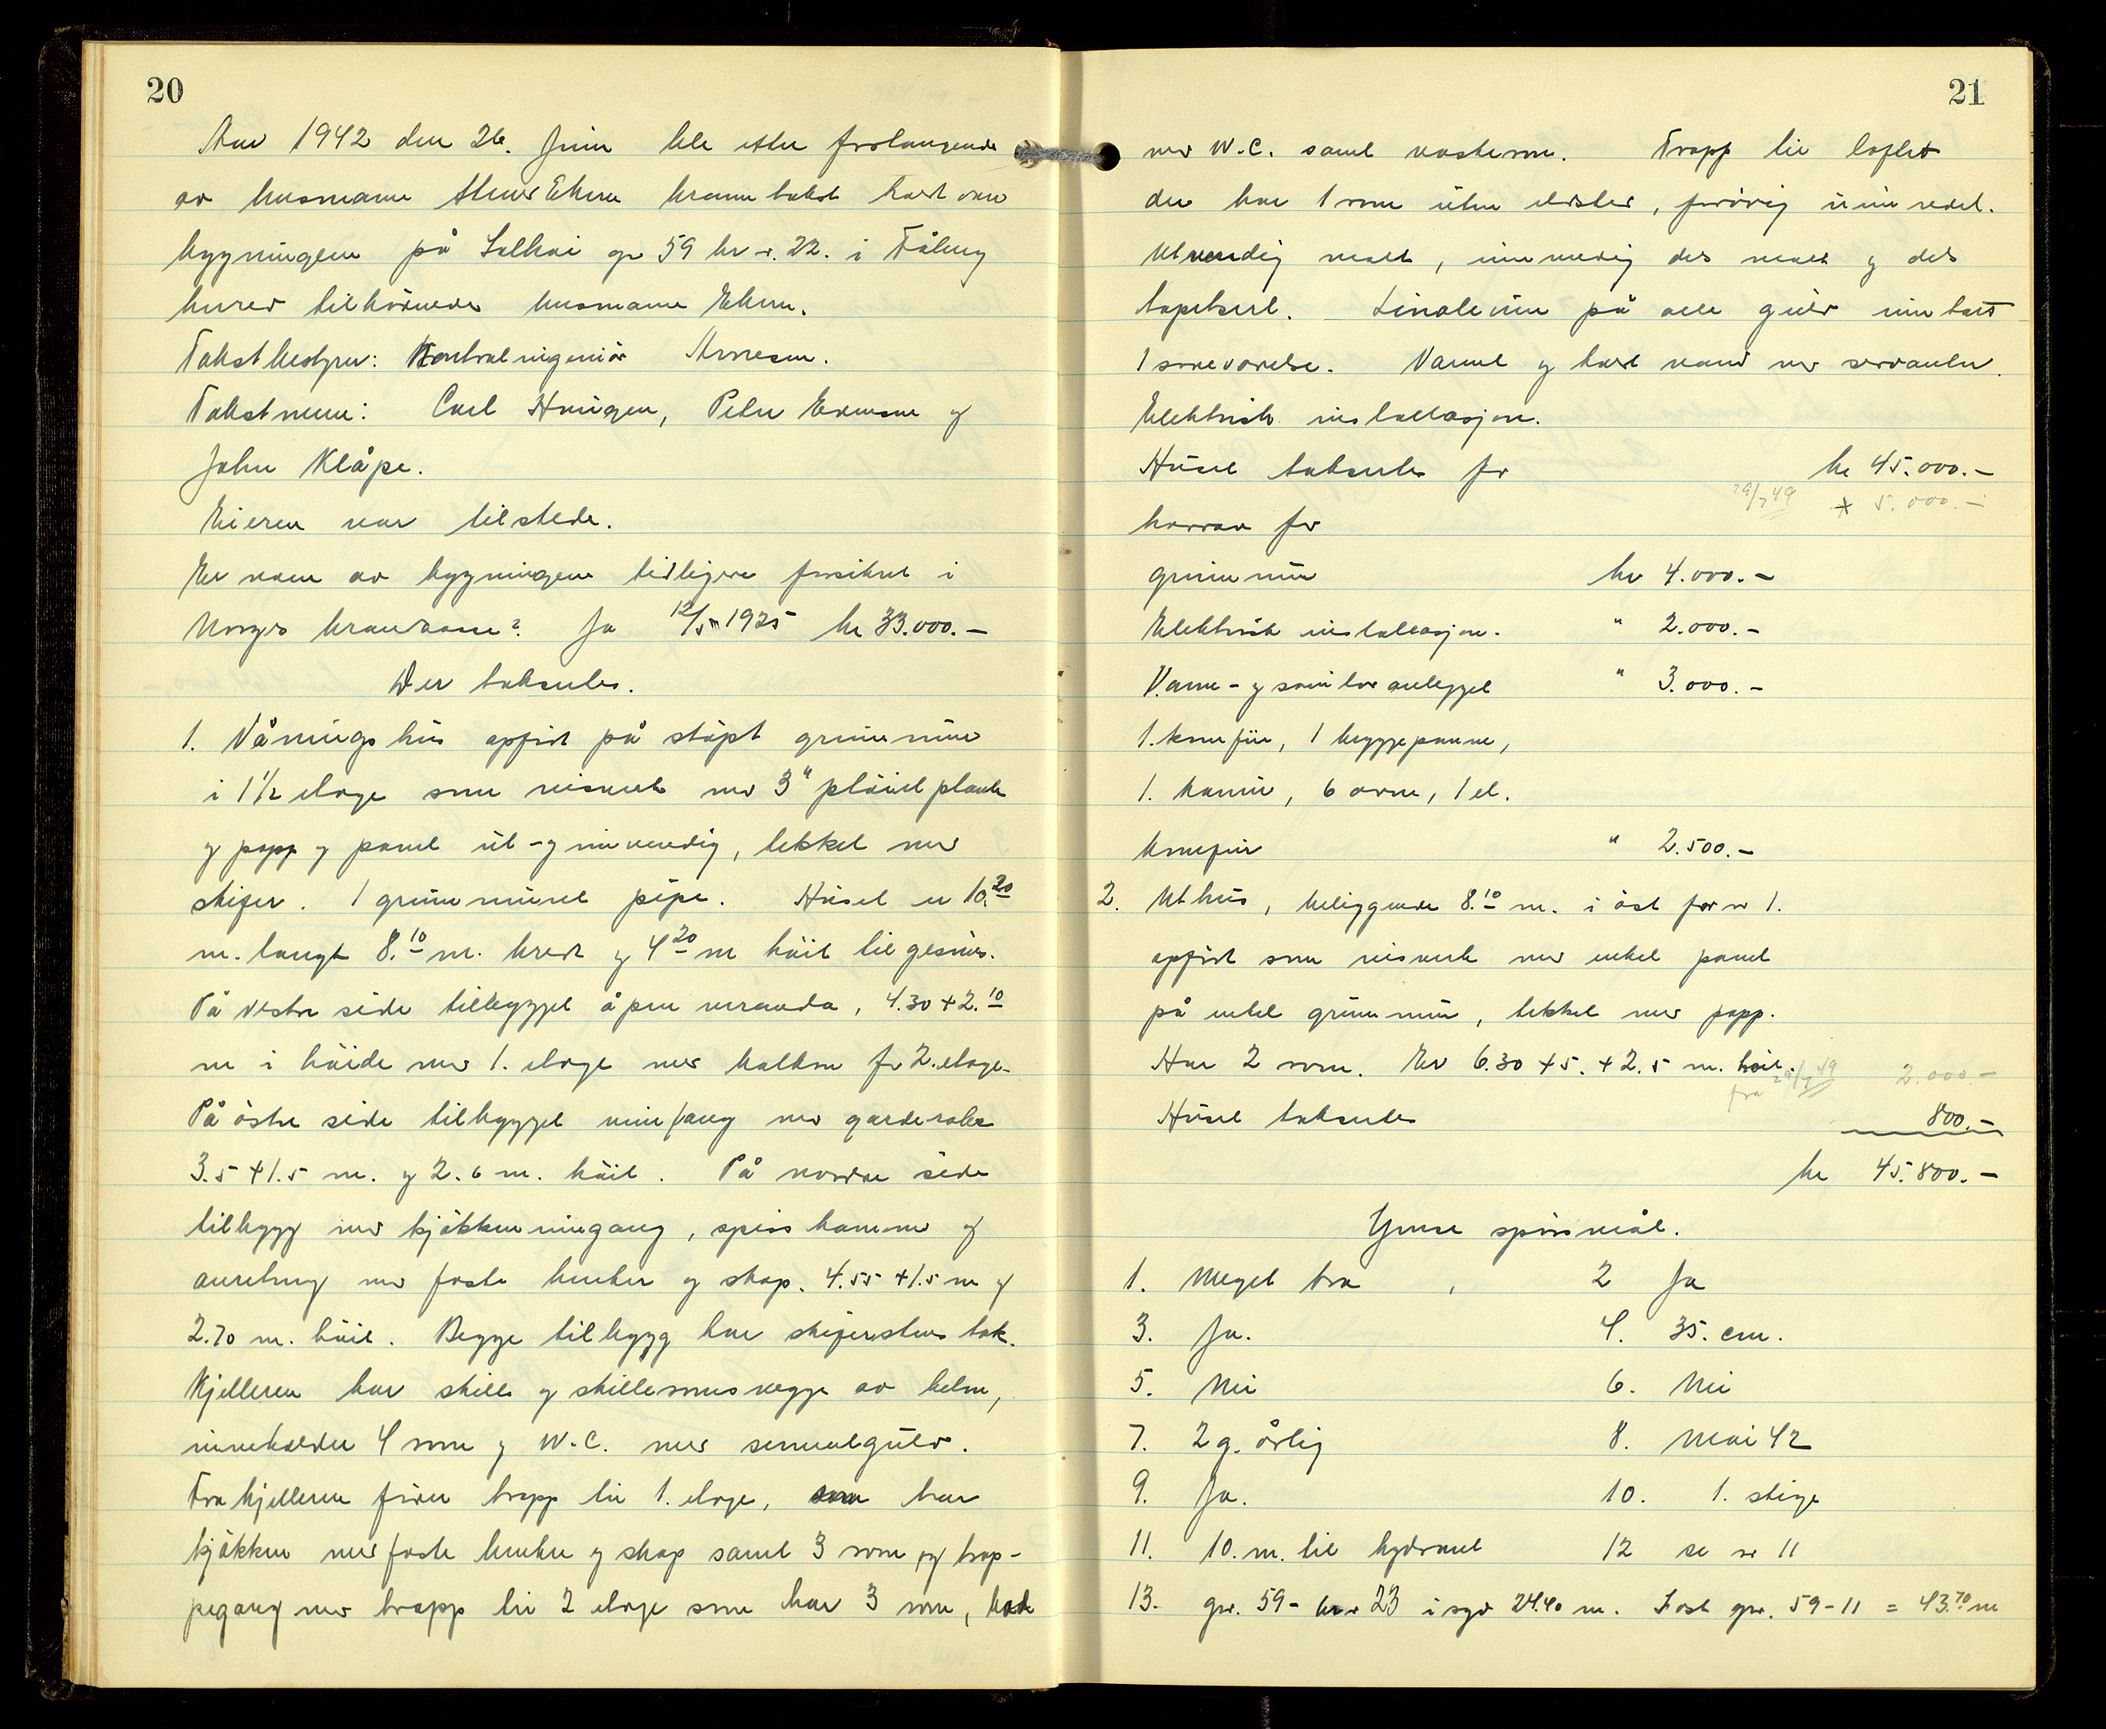 20
Aar 1942 den 26. Juni ble etter forlangende
av husmann Ekern branntakst holdt over
bygningene på Solhøi gr 59 br nr. 22. i Fåberg
herred tilhörende husmann Ekern.
Takstbestyrer: Kontrolingeniör Arnesen.
Takstmenn: Carl Haugen, Peder Evensen og
John Klåpe.
Eieren var tilstede.
Er noen av bygningene tidligere forsikret i
Norges brannkasse? Ja 12/5 1925 kr 33.000.-
Der takseres.
1. Våningshus opfört på stöpt grunnmur
i 1 1/2 etage som reisverk med 3" plöiet plank
og papp og panel ut- og innvendig, tekket med
skifer. 1 grunnmuret pipe. Huset er 10.20
m. langt 8.10 m. bredt og 4.20 m höit til gesims.
På vestre side tilbygget åpen veranda, 4.30 + 2.10
m i höide med 1. etage med balkon for 2. etage.
På östre side tilbygget inngang med garderobe
3.5 + 1.5 m. og 2.6 m. höit. På nordre side
tilbygg med kjökkeninngang, spiskammer og
anretning med faste benker og skap. 4.55 + 1.5 m og
2.70 m. höit. Begge tilbygg har skifertekket tak.
Kjelleren har skille og skillerumsvegge av beton,
inneholder 4 rom og W.C. med sementgulv.
Fra kjelleren förer trapp til 1. etage, som har
kjökken med faste benker og skap samt 3 rom og trap-
pegang med trapp til 2 etage som har 3 rom, bad
21
med W.C. samt vaskerom. Trapp til loftet
der har 1 rom uten ildsted, forövrig uinnredet.
Utvendig malt, innvendig dels malt og dels
tapetsert. Linoleum på alle gulv unntatt
1 soveværelse. Varmt og kaldt vand med servanter.
Elektrisk installasjon.
Huset takseres for kr 45.000.-
29/7 49 + 5.000.-
hvorav for
grunnmur kr 4.000.-
Elektrisk installasjon. " 2.000.-
Varme- og sanitæranlegget " 3.000.-
1. komfür, 1 bryggepanne,
1. kamin, 6 ovne, 1 el.
komfür " 2.500.-
2. Uthus, beliggende 8.10 m. i öst for nr 1.
opfört som reisverk med enkel panel
på enkel grunnmur, tekket med papp.
Har 2 rom. Er 6.30 + 5. + 2.5 m. höit.
fra 29/7 49 2.000.-
Huset takseres 800.-
kr 45.800.-
Ymse spörsmål.
1. Meget bra, 2 Ja
3. Ja. 4. 35. cm.
5. Nei 6. Nei
7. 2 g. årlig 8. Mai 42
9. Ja. 10. 1. stige
11. 10. m. til hydrant 12 se nr 11
13. gnr. 59- br nr 23 i syd 24.40 m. I öst gnr. 59-11 = 43.70 m